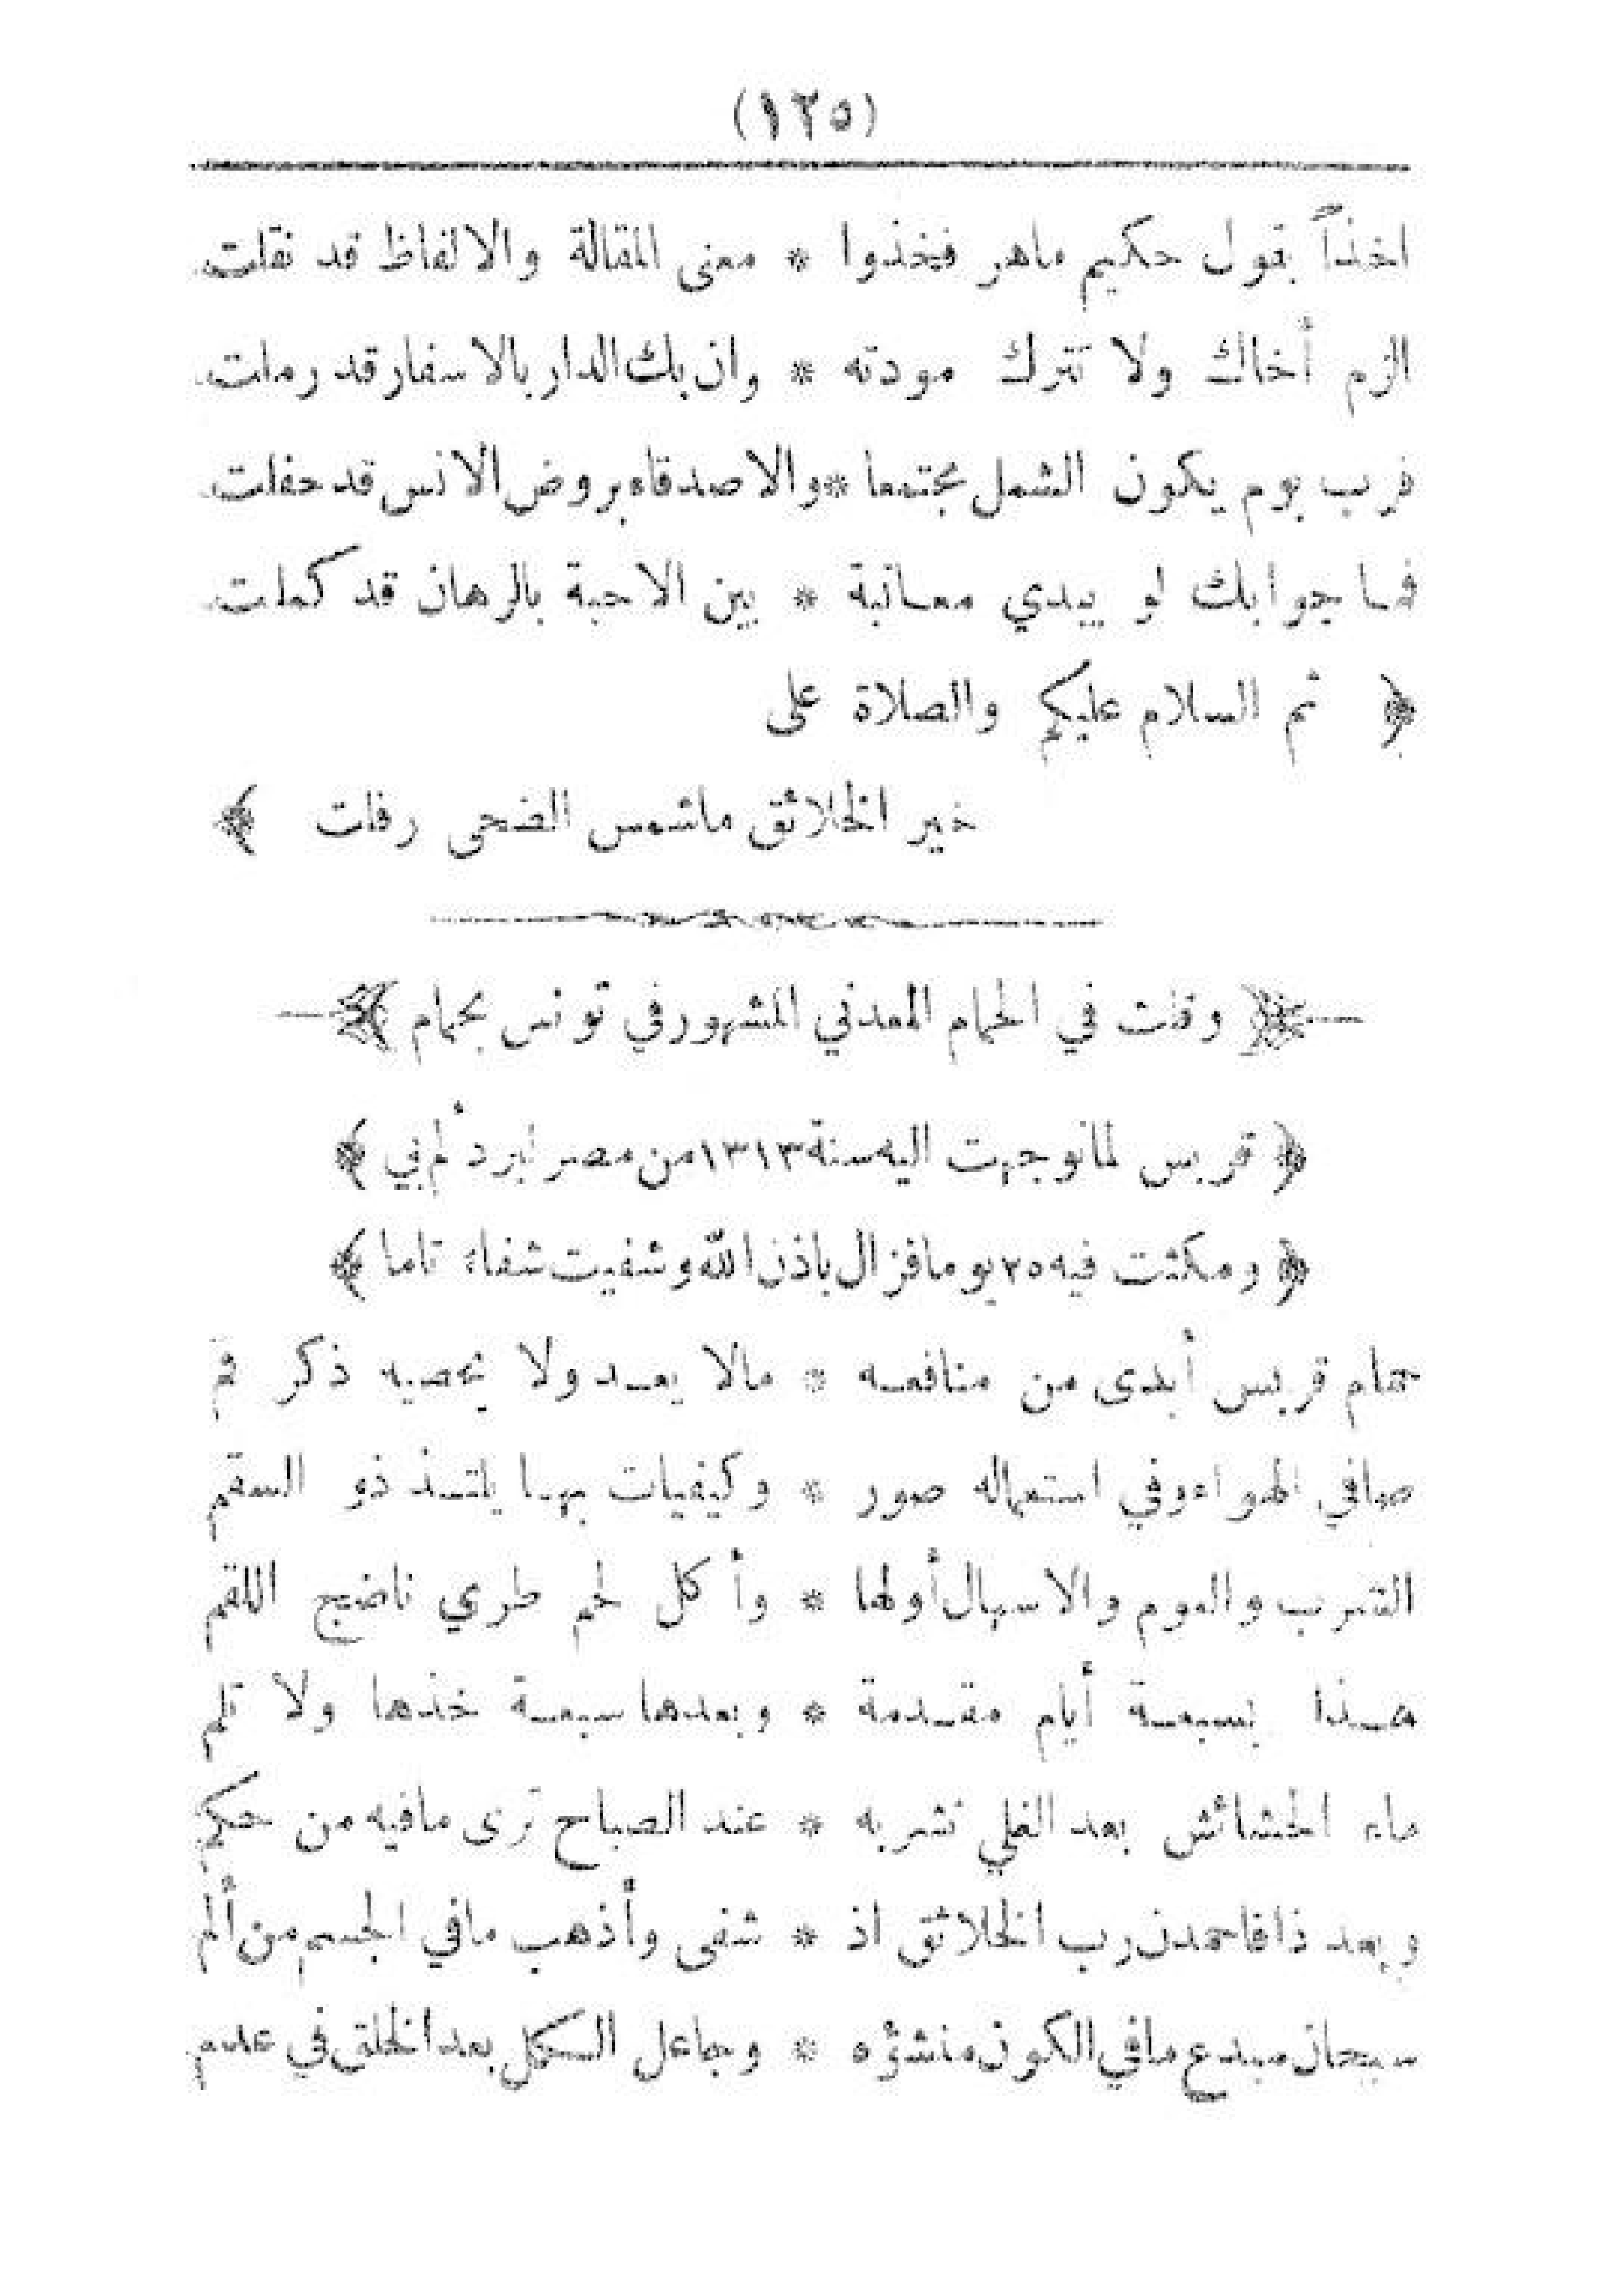 (١٢٥)
اخذاً بقول حكيم ماهر فخذوا * معنى المقالة والالفاظ قد نقلت
الزم أخاك ولا تترك مودته * وان بك الدار بالاسفار قد رملت
فرب يوم يكون الشمل مجتمعا * والاصدقاء بروض الانس قد حفلت
فما جوابك لو يبدي معاتبة * بين الاحبة بالرهان قد كملت
﴿ ثم السلام عليكم والصلاة على
خير الخلائق ماشمس الضحى رفلت ﴾
﴿ وقلت في الحمام المعدني المشهور في تونس بحمام ﴾
﴿ قربس لما توجهت اليه سنة ١٣١٣ من مصر لبرد ألم بي ﴾
﴿ ومكثت فيه ٢٥ يوما فزال باذن الله وشفيت شفاء تاما ﴾
حمام قربس أبدى من منافعه * مالا يعد ولا يحصيه ذكر فم
صافي الهواء وفي استعماله صور * وكيفيات بها يلتذ ذو السقم
الشرب والعوم والاسهال أولها * وأكل لحم طري ناضج اللقم
هذا بسبعة أيام مقدمة * وبعدها سبعة خذها ولا تلم
ماء الحشائش بعد الغلي تشربه * عند الصباح ترى مافيه من حكم
وبعد ذا فاحمدن رب الخلائق اذ * شفى وأذهب مافي الجسم من ألم
سبحان مبدع مافي الكون منشؤه * وجاعل الكل بعد الخلق في عدم